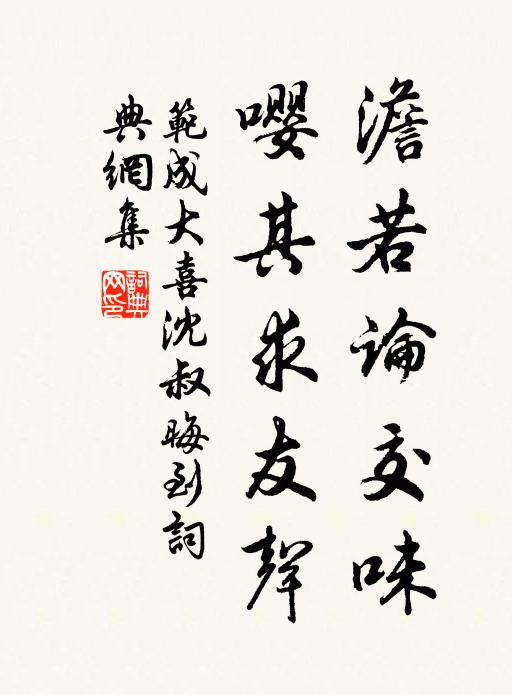 澹若論交味
嚶其求友聲
範成大喜沈叔晦到詞
典網集
詞典網印